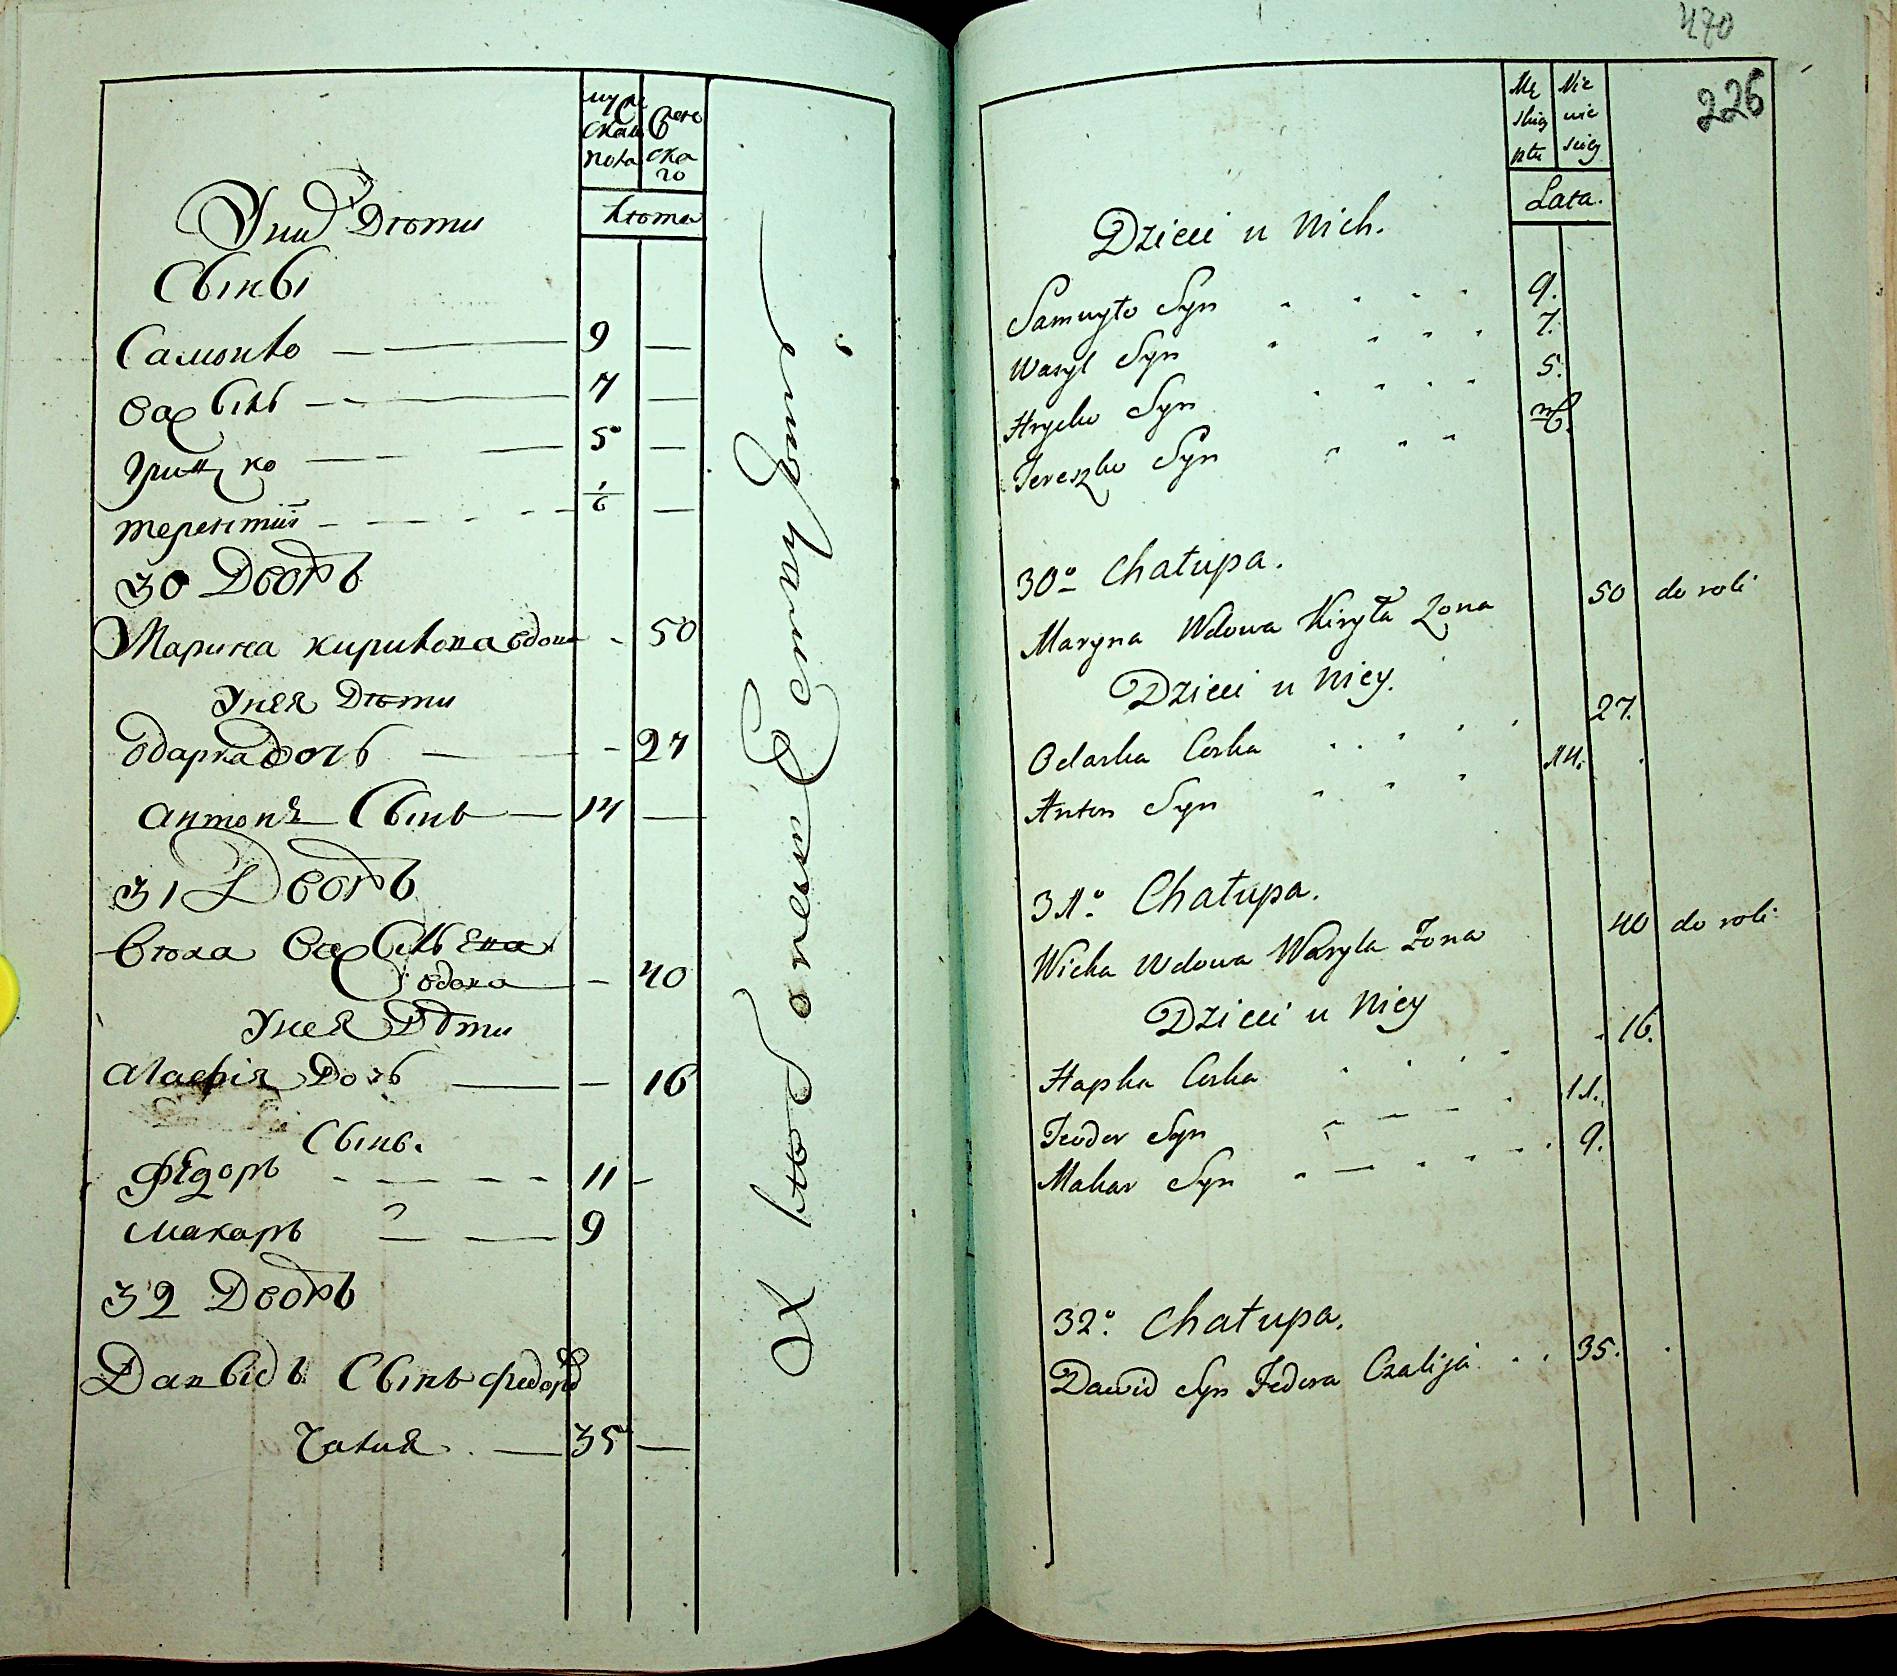 У ни Дѣти
Сыны
Самойло — 9 —
Василь — 7 —
Грицко — 5 —
терентий 1/6 —
30 Дворъ
Марина кирилова вдова - 50
У нея Дѣти
Одарка дочь — - 27
антонъ Сынъ — 14 —
31 Дворъ
Вѣка Василева
вдова — - 40
У нея Дѣти
Агафія Дочь — — 16
Сынъ.
Фѣдоръ 11 -
макаръ 9
32 Дворъ
Давыдъ Сынъ федора
Чалия — 35 —
Лѣта
470
226
Mę skiey płci
Nie wie ściey
Lata.
Dzieci u Nich.
Samuyło Syn 9.
Wasyl Syn 7.
Hryćko Syn 5.
Tereszko Syn
30º Chałupa.
Maryna Wdowa Kiryła Żona 50 do roli
Dzieci u Niey.
Odarka Corka 27.
Anton Syn 14.
31º Chałupa.
Wicka Wdowa Wasyla Żona 40 do roli
Dzieci u Niey
Hapka Corka 16.
Teodor Syn 11.
Makar Syn 9.
32º Chałupa.
Dawid Syn Fedora Czalija 35.